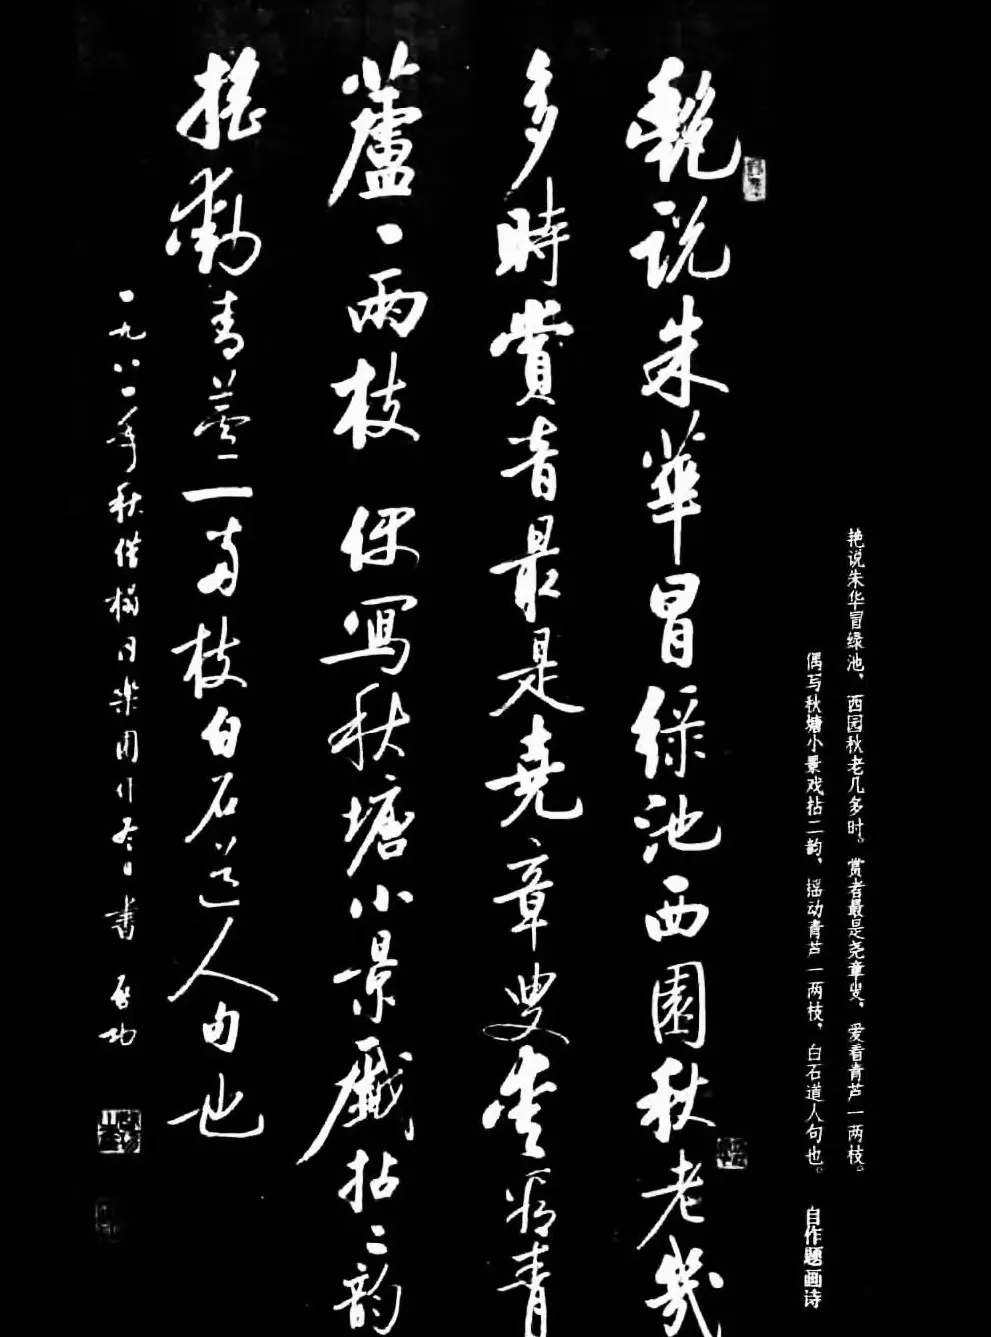 艳说朱华冒绿池、西园秋老几多时。赏者最是尧章叟、爱看青芦一两枝。
偶写秋塘小景戏拈二韵、摇动青芦一两枝、白石道人句也。 自作题画诗
艷说朱華冒緑池西園秋老幾
多時賞音最是堯章叟爱看青
蘆一兩枝 偶寫秋塘小景戲拈二韵
摇動青蘆一兩枝白石道人句也
一九八一年秋借榻 書 启功